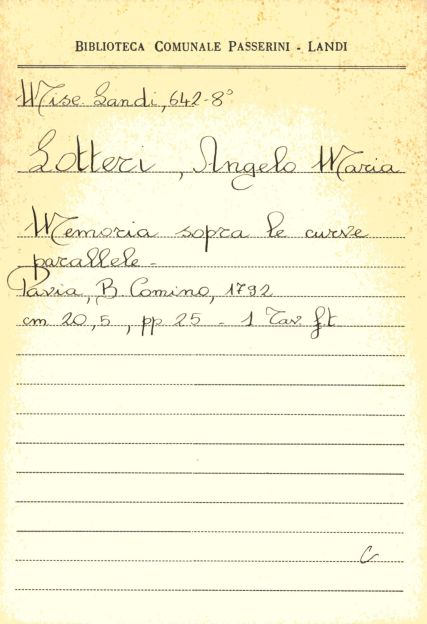 BIBLIOTECA COMUNALE PASSERINI - LANDI
Misc. Landi, 642-8°
Lotteri, Angelo Maria
Memoria sopra le curve
parallele -
Pavia, B. Comino, 1792
cm 20,5, pp 25 - 1 Tav. f.t.
C